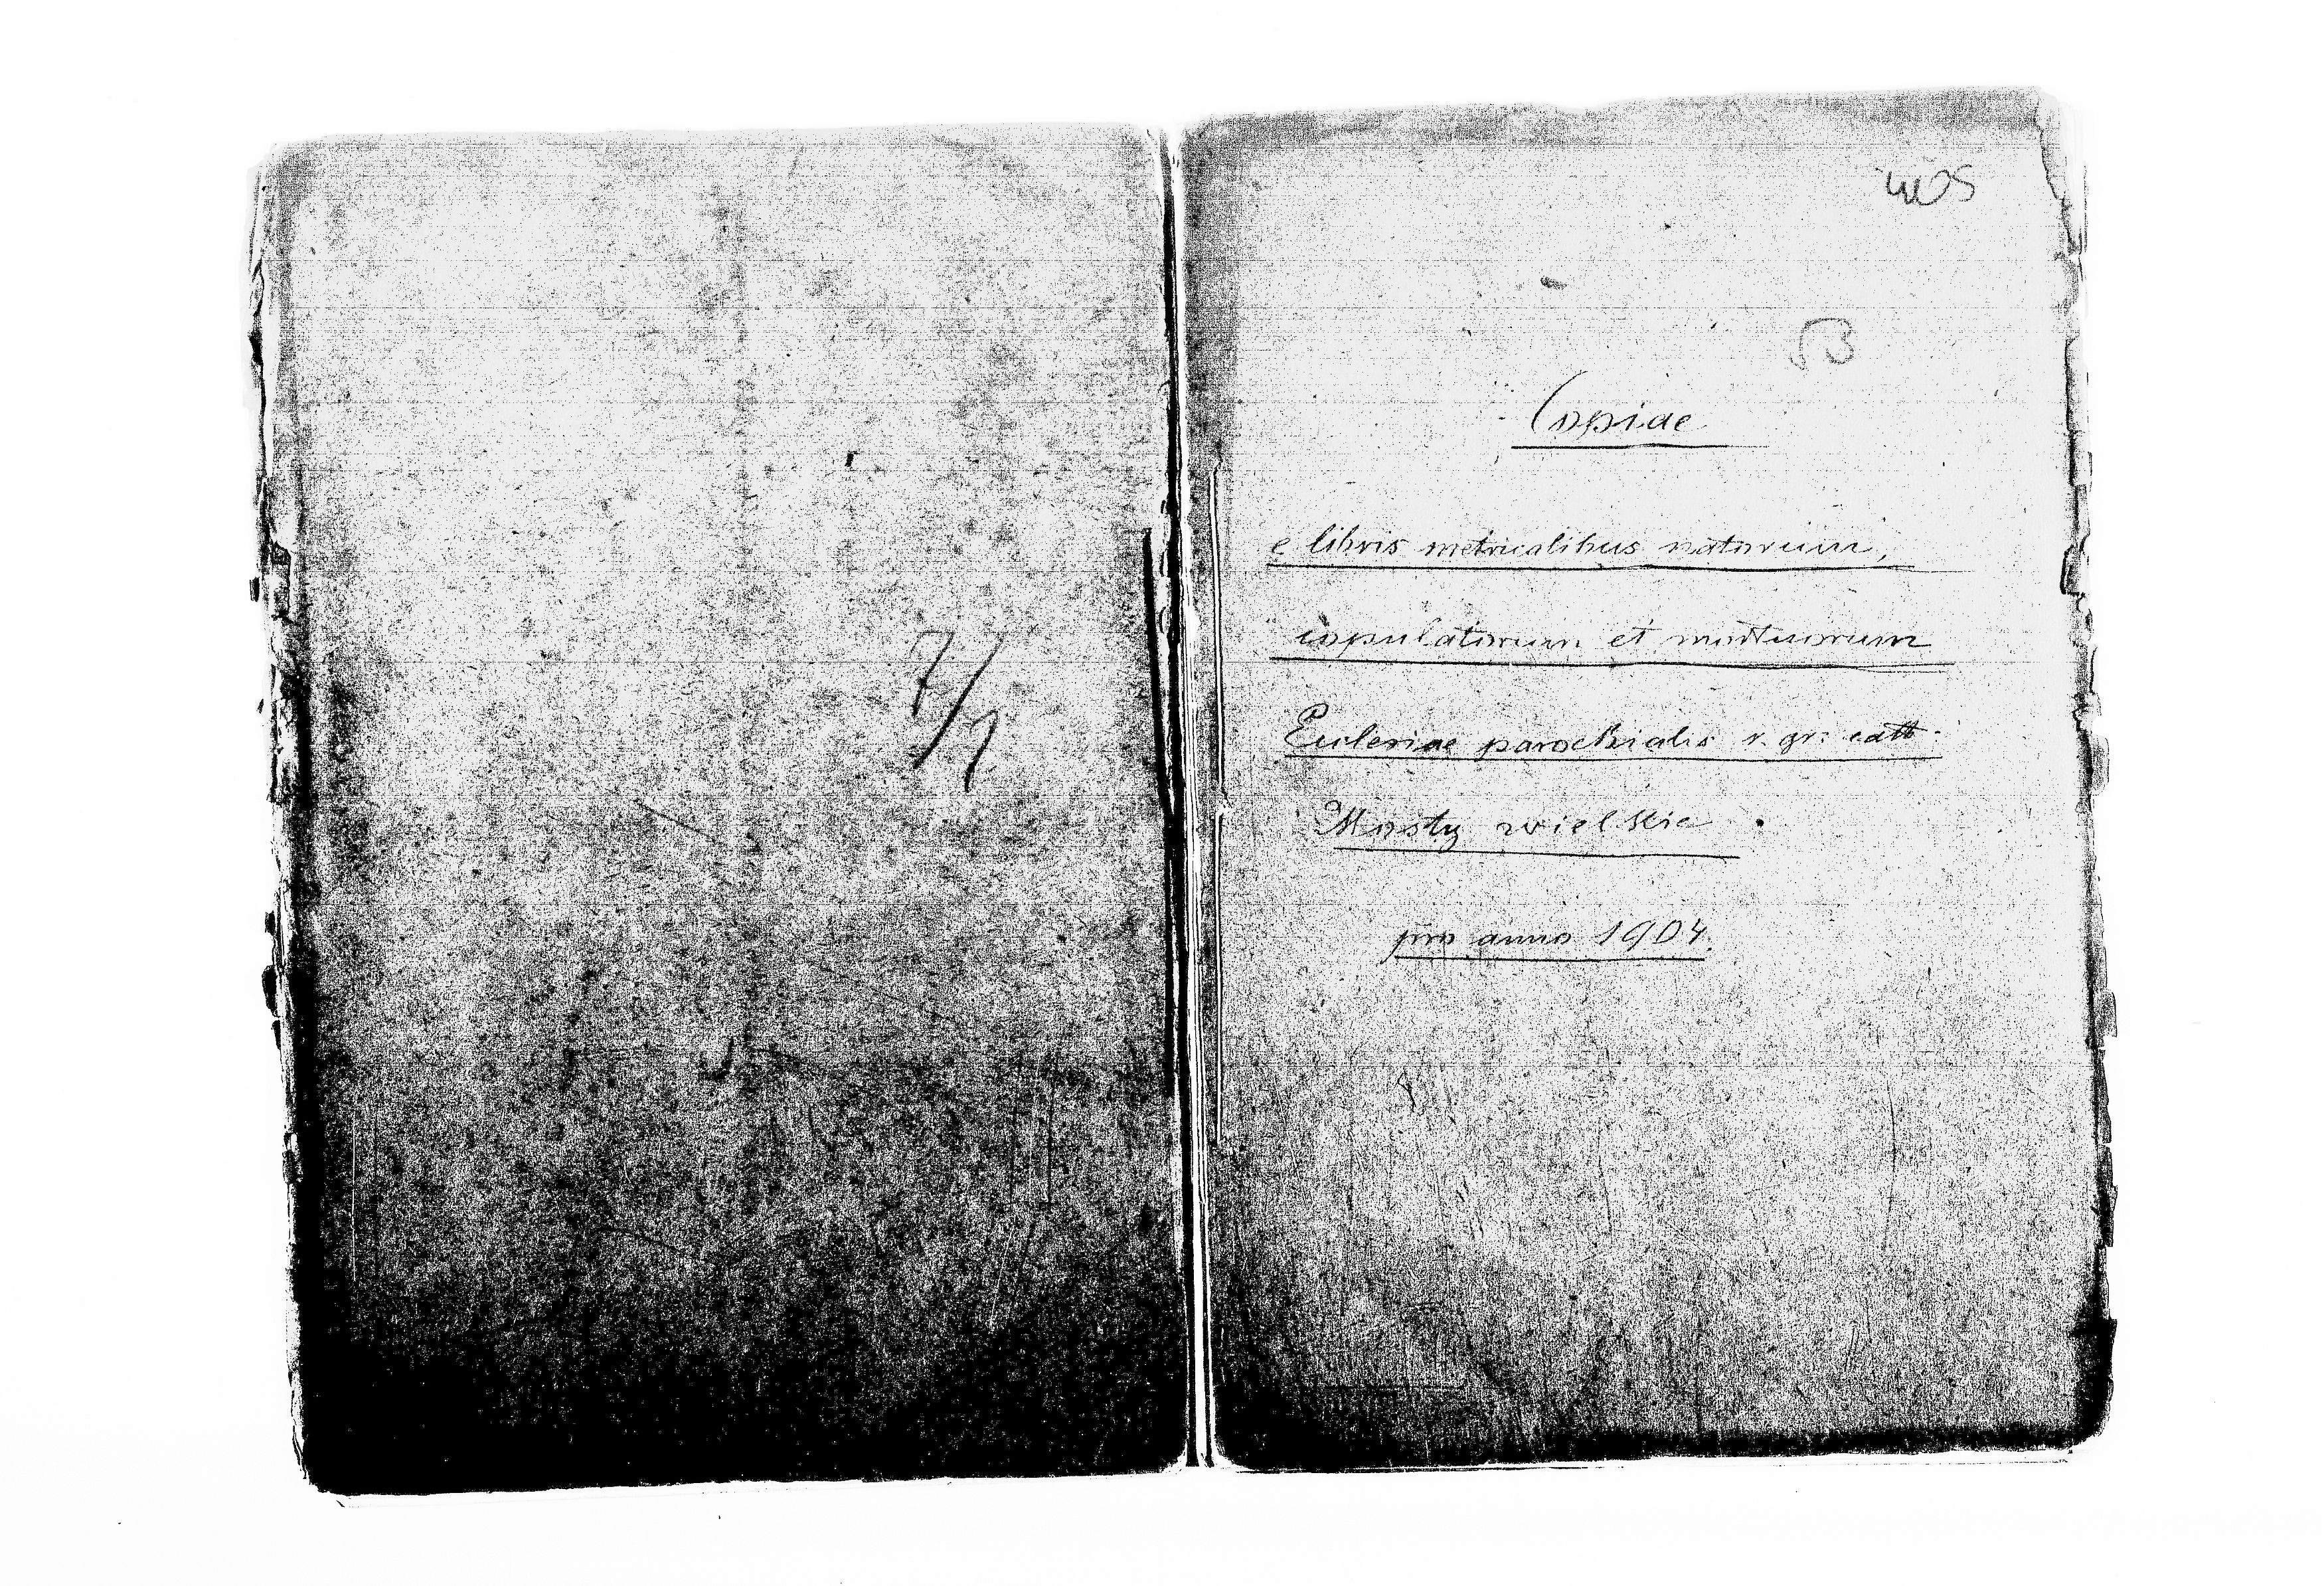 7/1
53
Copiae
e libris metricalibus natorum,
copulatorum et mortuorum
Ecclesiae parochialis r. gr: cath.
Mosty wielkie
pro anno 1904.